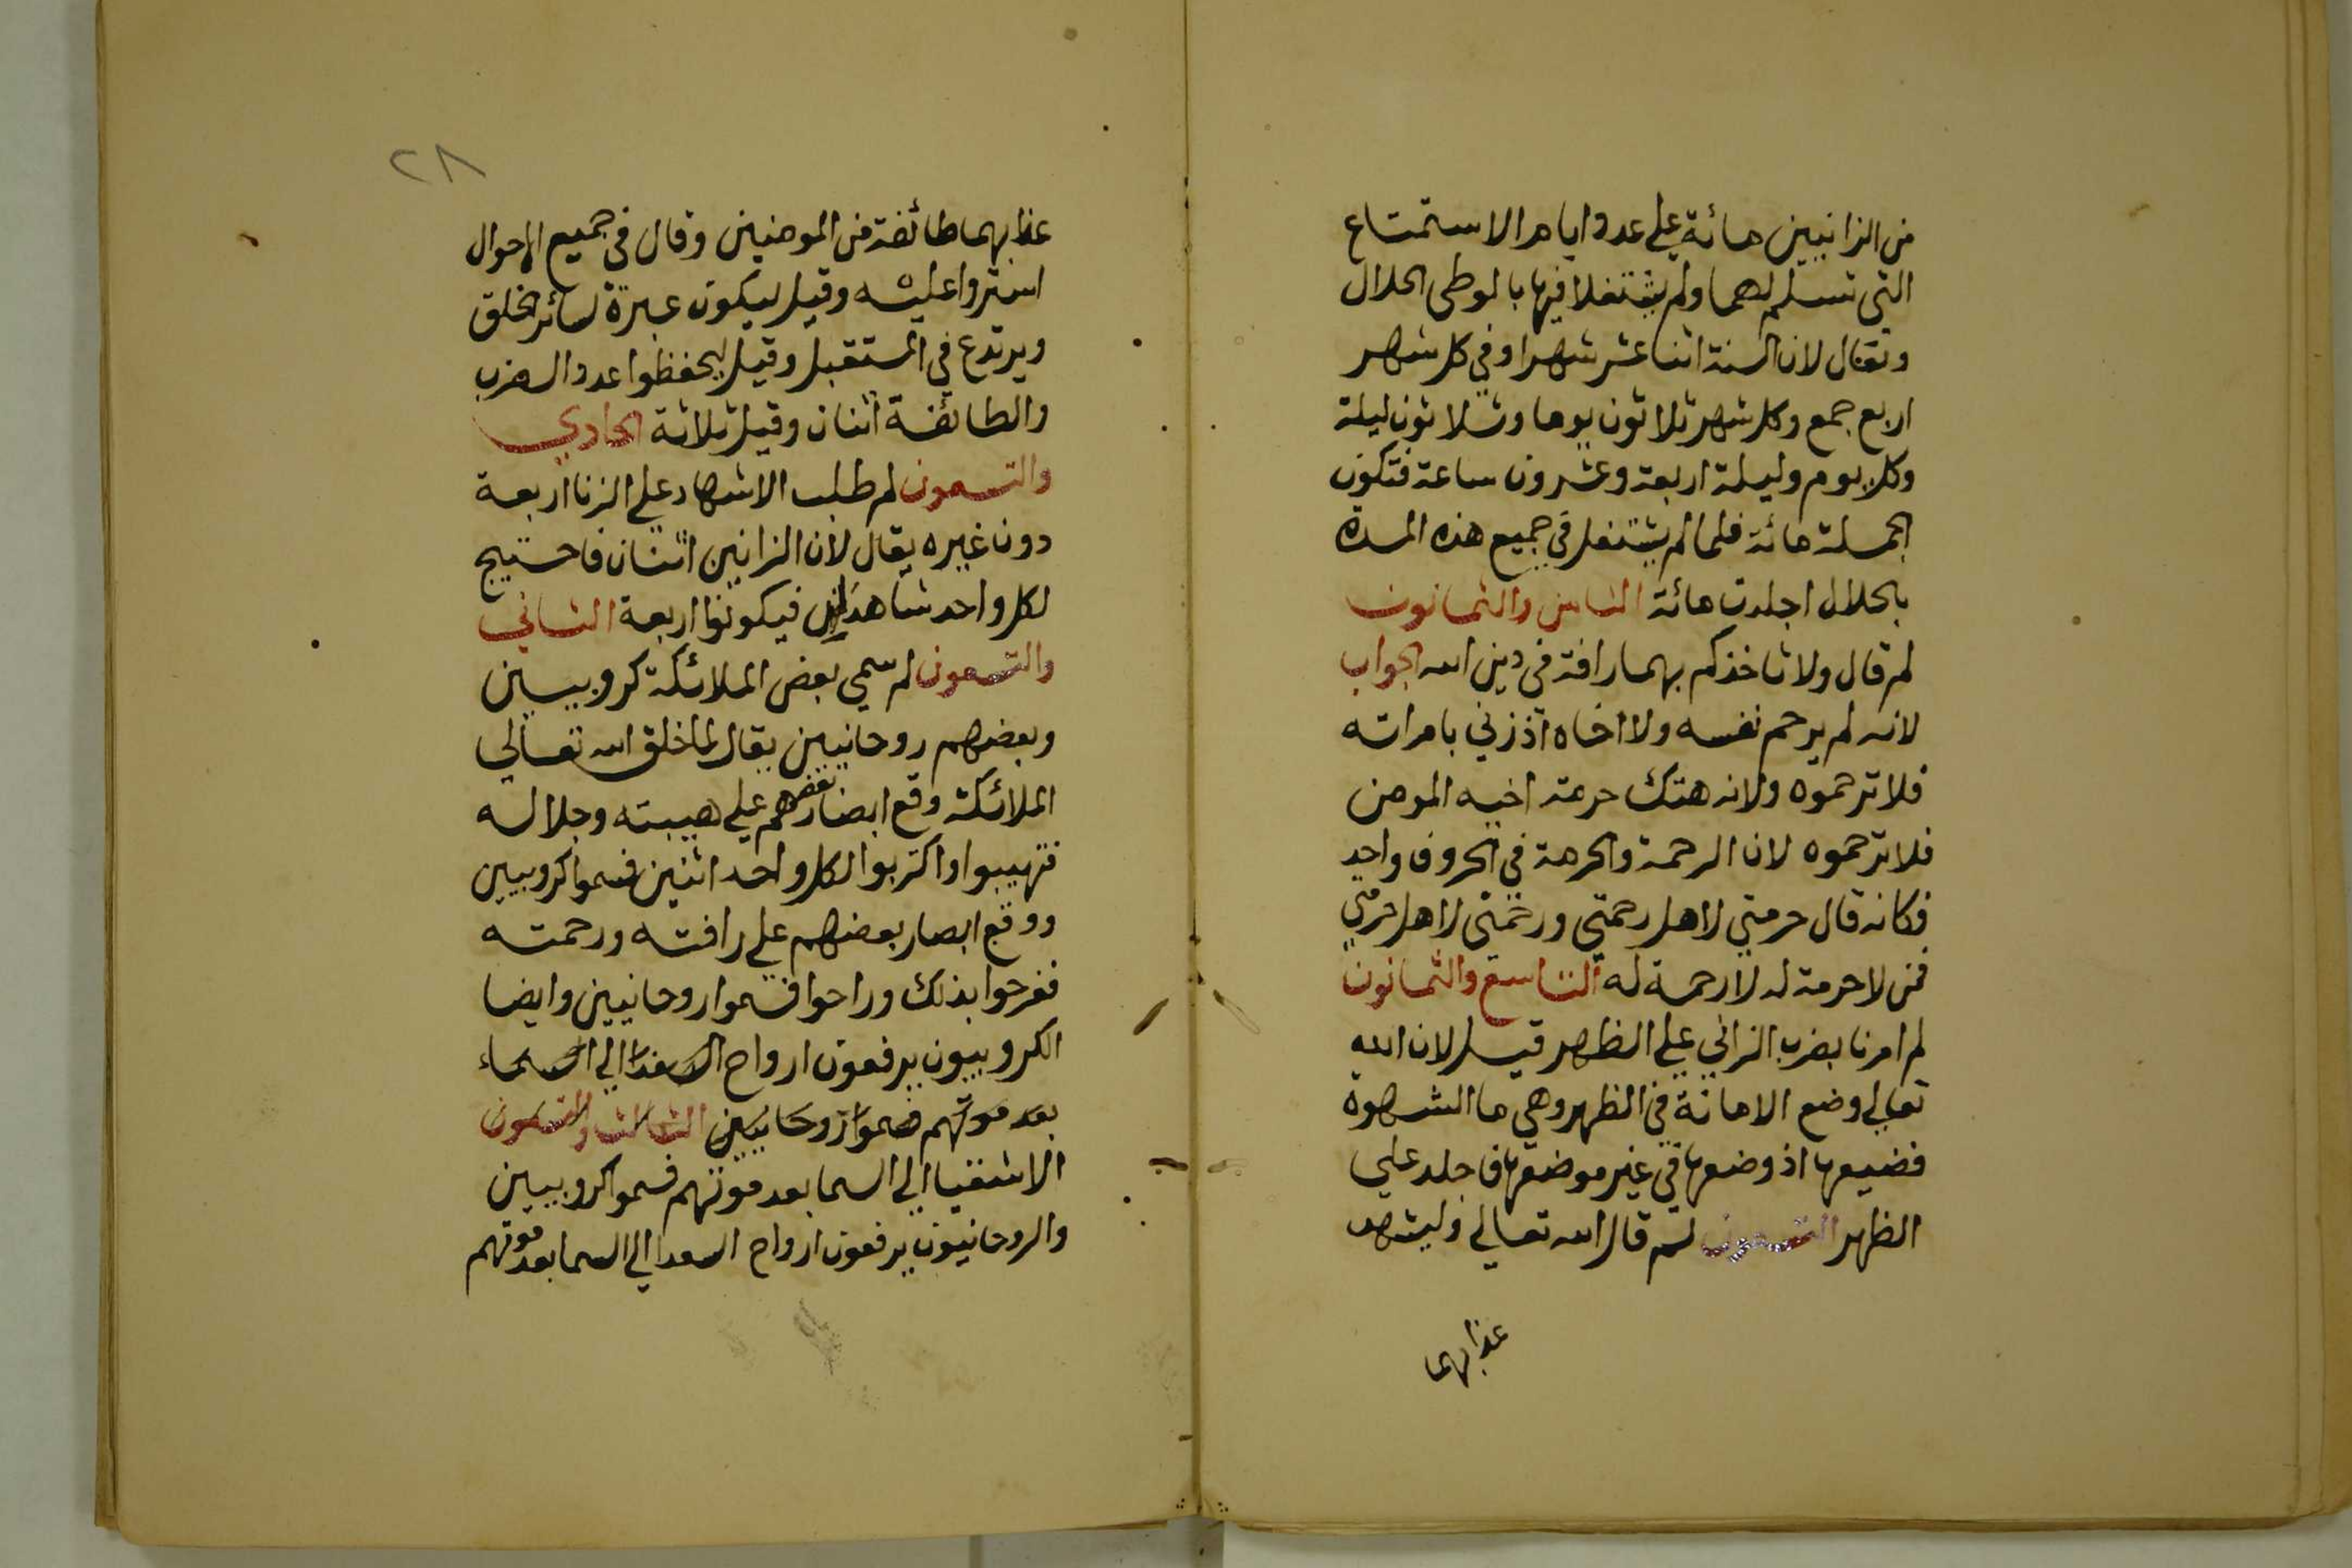 من الزانيين مائة علي عدد ايام الاستمتاع
التي تسلم لهما ولم يشتغلا فيها بالوطي الحلال
ويقال لان السنة اثنا عشر شهرا وفي كل شهر
اربع جمع وكل شهر ثلاثون يوما وثلاثون ليلة
وكل يوم وليلة اربعة وعشرون ساعة فتكون
الجملة مائة فلما لم يشتغل في جميع هذه المدة
بالحلال اجلدت مائة الثامن والثمانون
لم قال ولا تاخذكم بهما رافة في دين الله الجواب
لانه لم يرحم نفسه ولا اخاه اذ زني بامراته
فلا ترحموه ولانه هتك حرمة اخيه المومن
فلا ترحموه لان الرحمة والحرمة في الحروف واحد
فكانه قال حرمتي لاهل رحمتي ورحمتي لاهل حرمتي
فمن لا حرمة له لا رحمة له التاسع والثمانون
لم امرنا بضرب الزاني علي الظهر قيل لان الله
تعالي وضع الامانة في الظهر وهي ما الشهوة
فضيعها اذ وضعها في غير موضعها فاجلد علي
الظهر التسعون لم قال الله تعالي وليشهد
عذابهما
٢٨
عذابهما طائفة من المومنين وقال في جميع الاحوال
استروا عليه وقيل ليكون عبرة لسائر الخلق
ويرتدع في المستقبل وقيل ليحفظوا عدد الضرب
والطائفة اثنان وقيل ثلاثة الحادي
والتسعون لم طلب الاشهاد علي الزنا اربعة
دون غيره يقال لان الزانيين اثنان فاحتيج
لكل واحد شاهدان فيكونوا اربعة الثاني
والتسعون لم سمي بعض الملائكة كروبيين
وبعضهم روحانيين يقال لما خلق الله تعالي
الملائكة وقع ابصار بعضهم علي هيبته وجلاله
فتهيبوا واكتربوا لكل واحد اثنين فسموا كروبيين
ووقع ابصار بعضهم علي رافته ورحمته
ففرحوا بذلك وراحوا فسموا روحانيين وايضا
الكروبيون يرفعون ارواح السعدا الي السماء
بعد موتهم فسموا روحانيين الثالث والتسعون
الاشقيا الي السما بعد موتهم فسموا كروبيين
والروحانيون يرفعون ارواح السعدا الي السما بعد موتهم